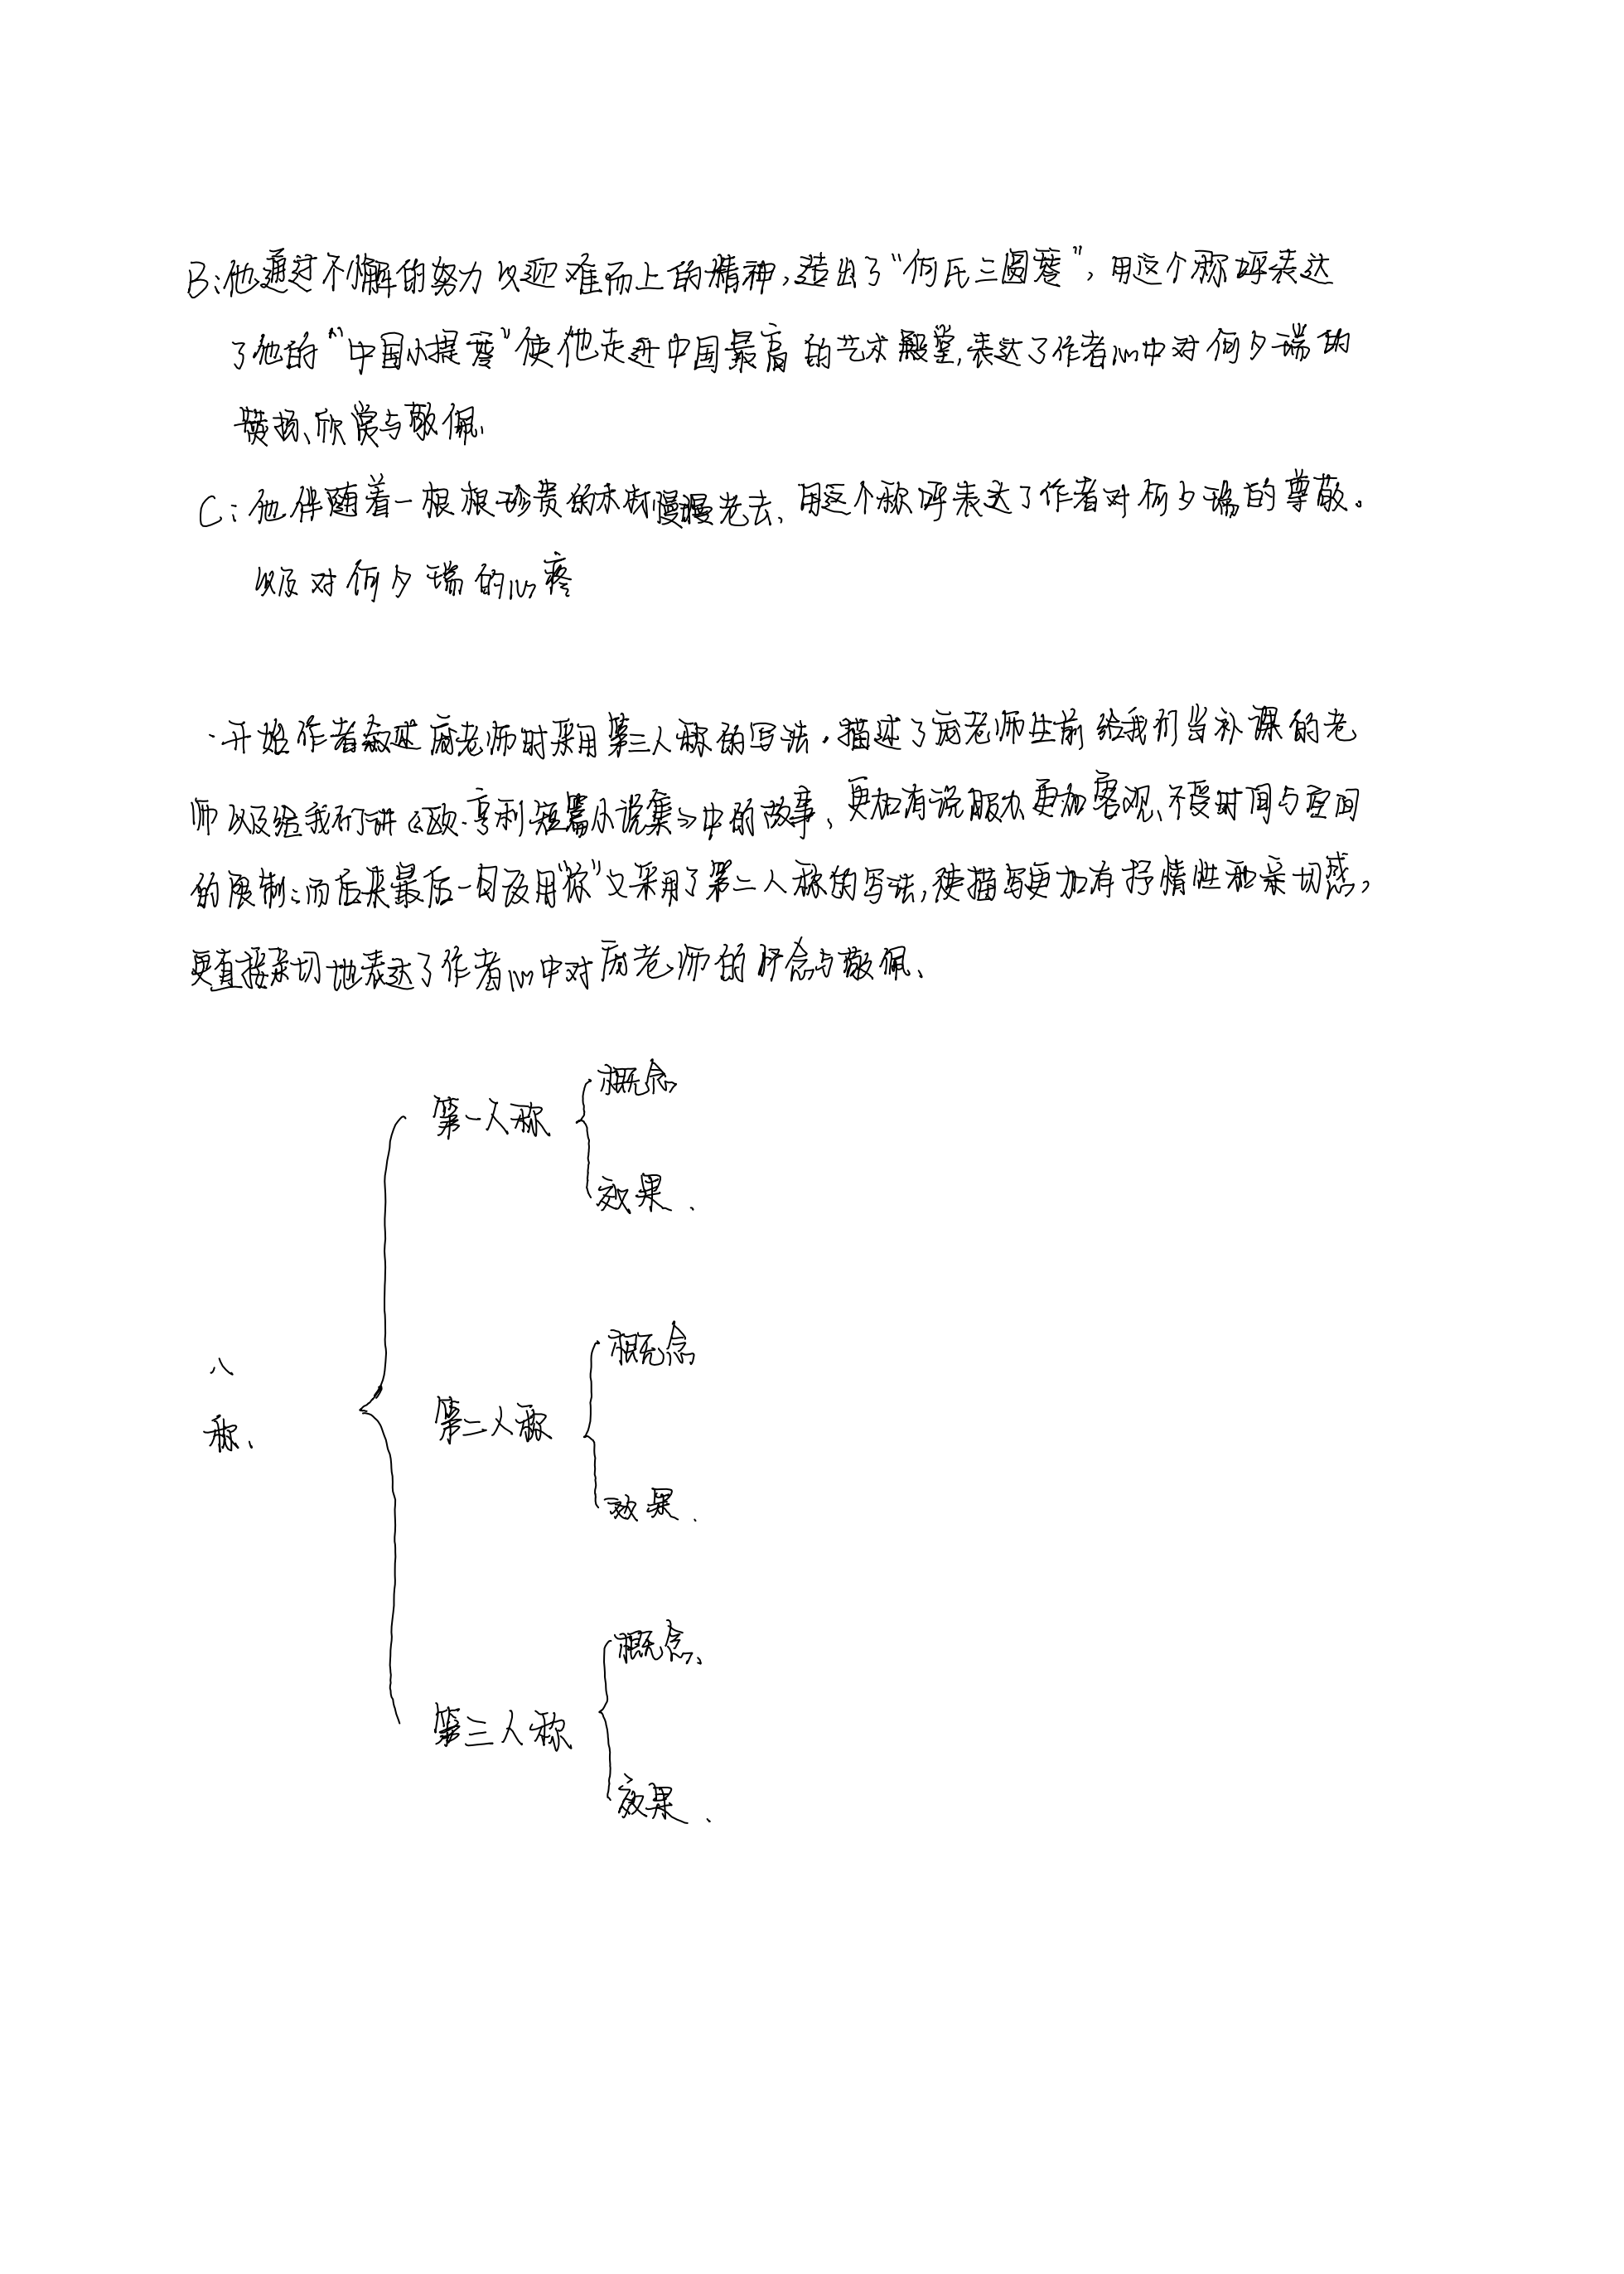 B:他通过不懈的努力以迎难而上的精神,造出了“何氏三圆琴”,用这个称呼表达
了他的“中国小提琴”使他走进中国最高的艺术殿堂,表达了作者心中对何夕瑞的
赞扬、欣赏与敬佩、
C:他伴随着一根根珍贵的木材慢慢老去、用这个称呼表达了作者对何夕瑞的尊敬。
以及对何夕瑞的心疼
一开始作者叙述庞老师时采用第三人称的写法,描述了庞老师生前给我们当补课的老
师以及给我们讲《欧·亨利短篇小说集》中的故事、更加有说服力更加客观、不受时间与空间
的限制;而后来最后一句改用“你”又采用了第二人称的写法,使描写更加有抒情性和亲切感,
更直接亲切地表达了作者心中对庞老师的怀念与敬佩、
概念
第一人称
效果.
概念
人
称、
第二人称
效果.
概念、
第三人称
效果.